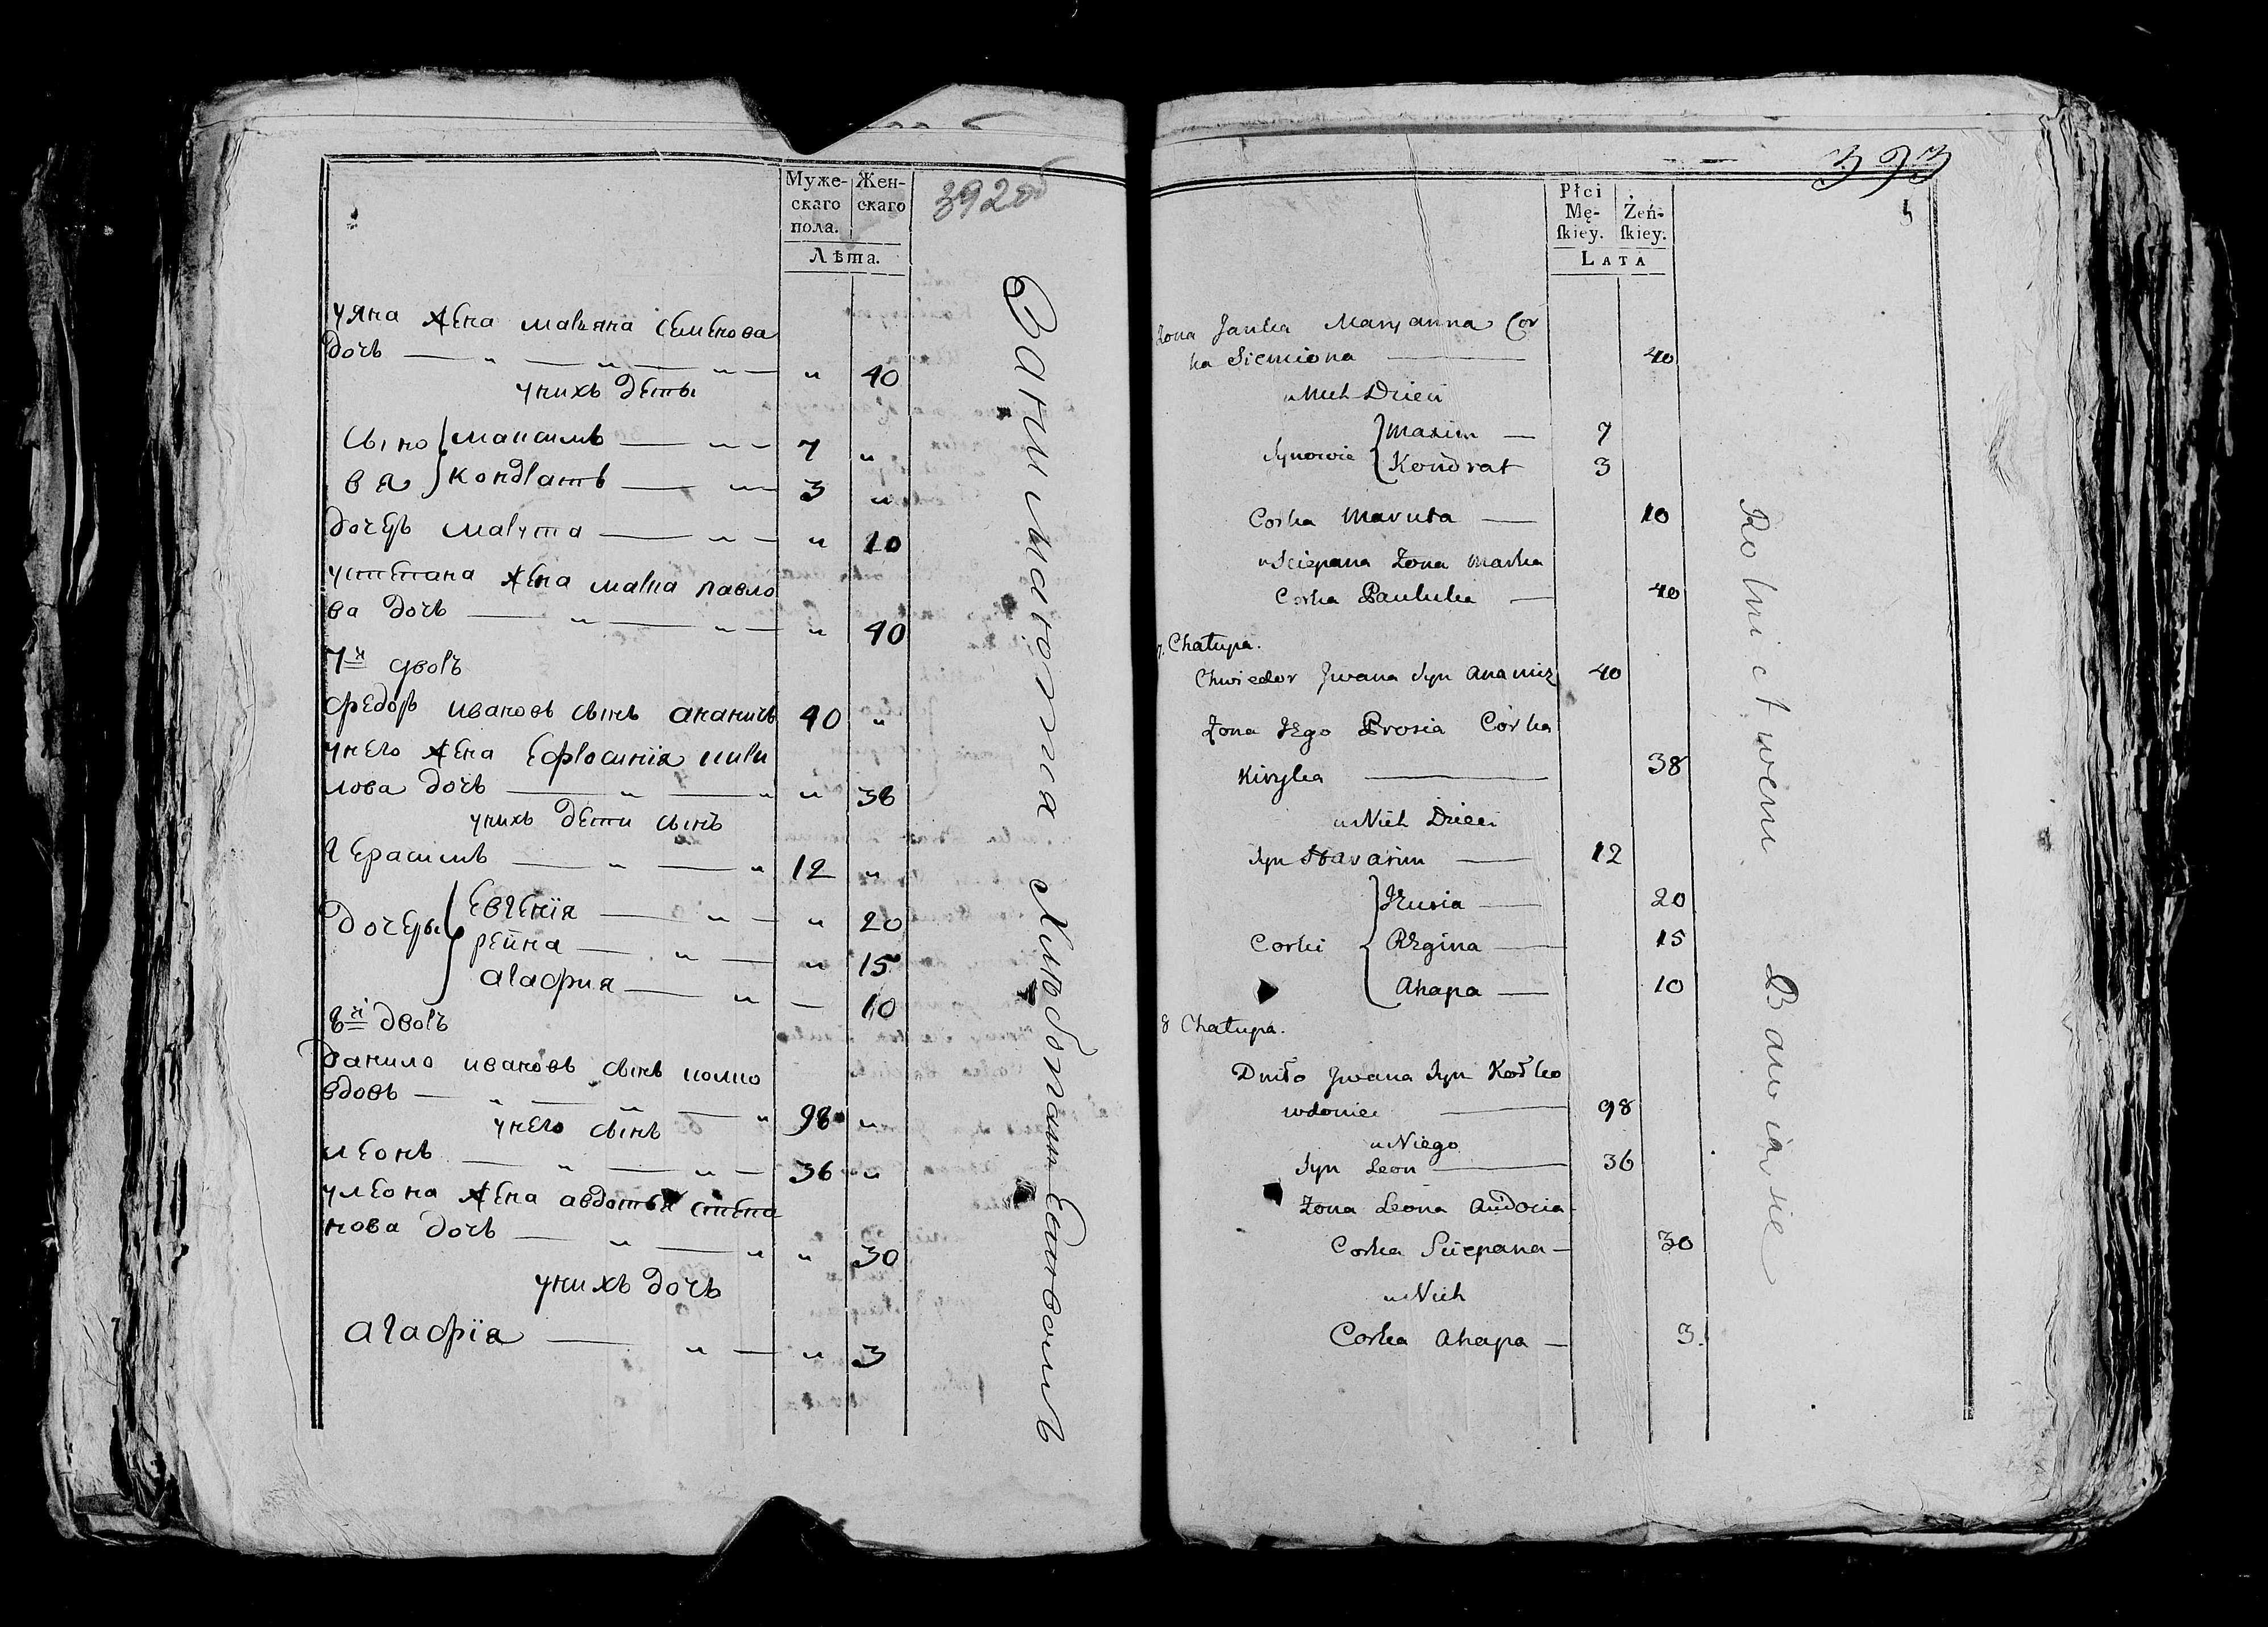 392 об
Муже-
скаго
пола.
Жен-
скаго
Лѣта.
у Яна жена Марьяна Семенова
дочь — „ — „ — „ — „ 40
у нихъ дѣты
Сыно
вя
Максимъ — „ — 7 „
Кондратъ — „ — 3 „
дочерь Марута — „ — „ 10
у Степана жена Марка Павло
ва дочь — „ — „ — „ 40
7й дворъ
Федоръ Ивановъ сынъ Ананичъ 40 „
у него жена Ефросинія Кири
лова дочь — „ — „ „ 38
у нихъ дети сынъ
Герасимъ — „ — „ 12 „
дочеры
Евгенія — „ — „ 20
Рейна — „ — „ 15
Агафия — „ — 10
8й дворъ
Данило Ивановъ сынъ Колко
вдовъ — „ — „ — „ 98 „
у него сынъ
Леонъ — „ — „ — 36 „
у Леона жена Авдотья Степа
нова дочь — „ — „ „ 30
у нихъ дочь
Агафія — „ — „ 3
Занимаются Хлебопашествомъ
393
Płci
Mę-
ſkiey.
Żeń-
ſkiey.
LATA
Żona Janka Maryanna Cor
ka Siemiona — 40
u Nich Dzieci
Synowie
Maxim — 7
Kondrat 3
Corka Maruta — 10
u Sciepana Żona Marka
Corka Pauluka — 40
7. Chałupa.
Chwiedor Jwana Syn Ananicz 40
Żona Jego Prosia Córka
Kiryła — 38
u Nich Dzieci
Syn Harasim — 12
Corki
Jeusia — 20
Regina — 15
Ahapa — 10
8 Chałupa.
Dniło Jwana Syn Kołko
wdowiec — 98
u Niego
Syn Leon — 36
Żona Leona Audocia
Corka Sciepana — 30
u Nich
Corka Ahapa — 3.
Rolnictwem Bawia sie